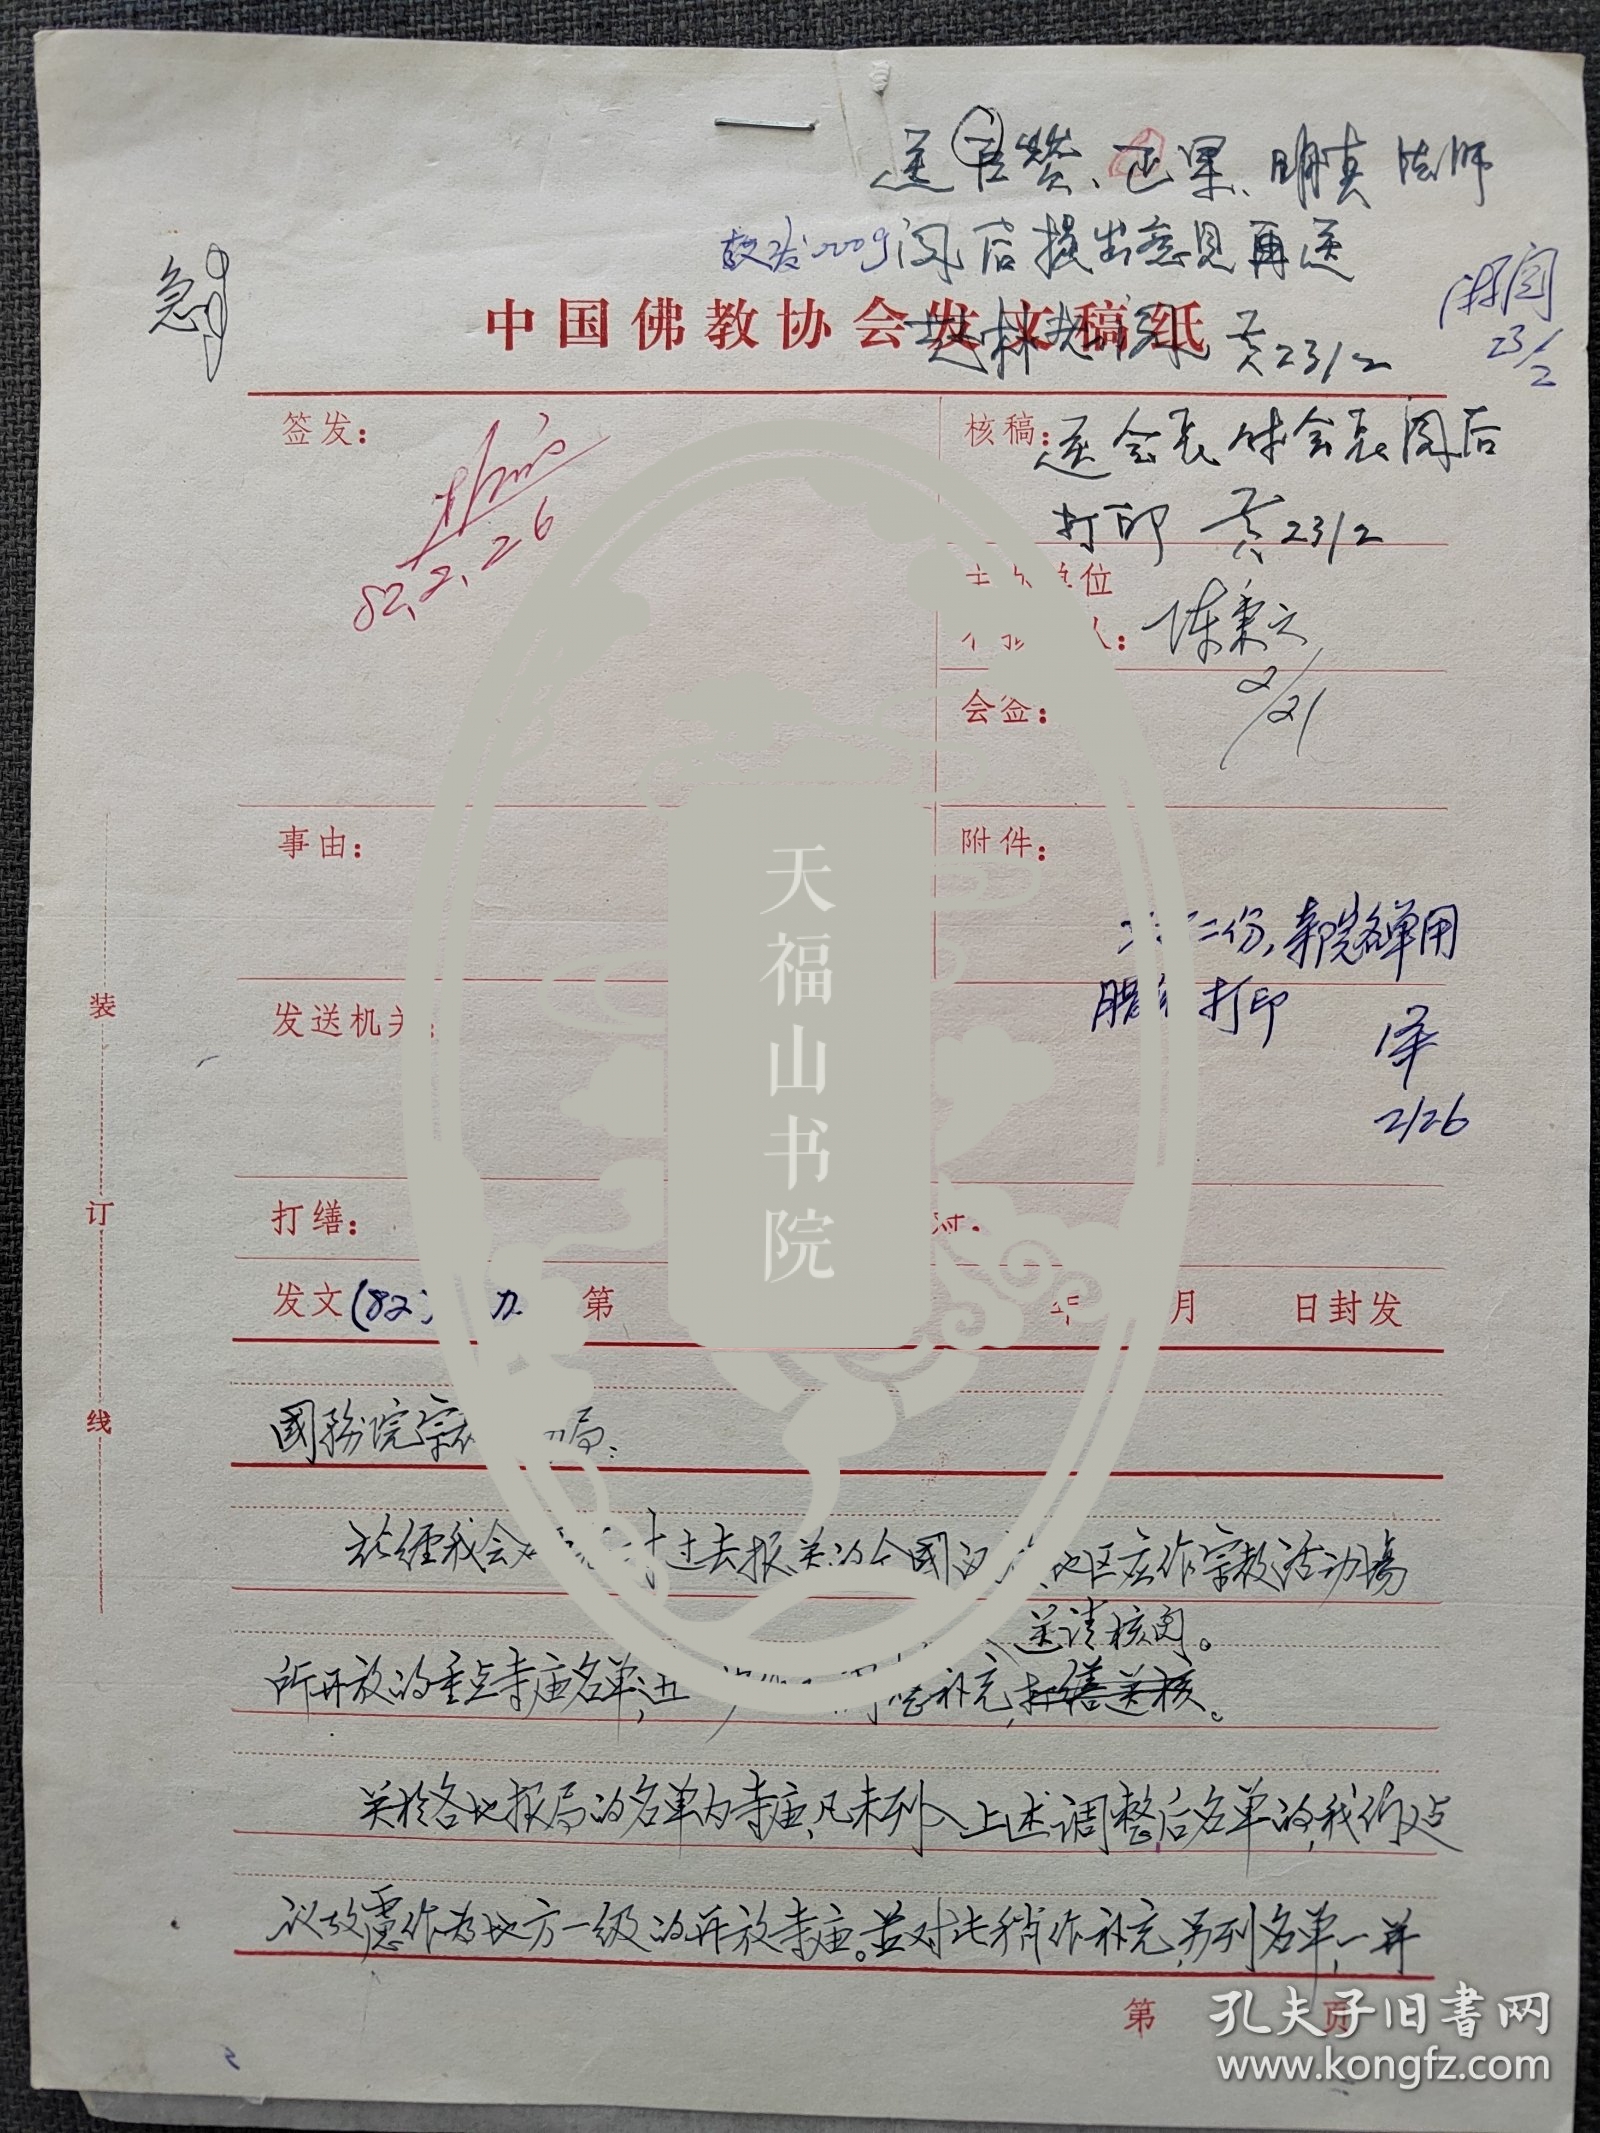 送巨赞、正果、明真法师
阅后提出意见再送
急
中国佛教协会发文稿纸
黄23/2
阅
23/2
签发：
82.2.26
核稿：
送会长 付会长阅后
打印 黄23/2
位
人：陈秉之
2/21
会签：
事由：
附件：
二份，寺院名单用
打印
泽
2/26
发送机关：
打缮：
发文(82) 第
月 日封发
装
订
线
國務院宗 局：
兹經我会 过去报关的全國 地区应作宗教活动場
送请核阅。
所开放的重点寺庙名单, 补充，打缮送核。
关於各地报局的名单内寺庙，凡未列入上述调整后名单的，我们建
议攷慮作为地方一级的开放寺庙。并对此稍作补充，另列名单，一并
第 页
天福山书院
孔夫子旧书网
www.kongfz.com